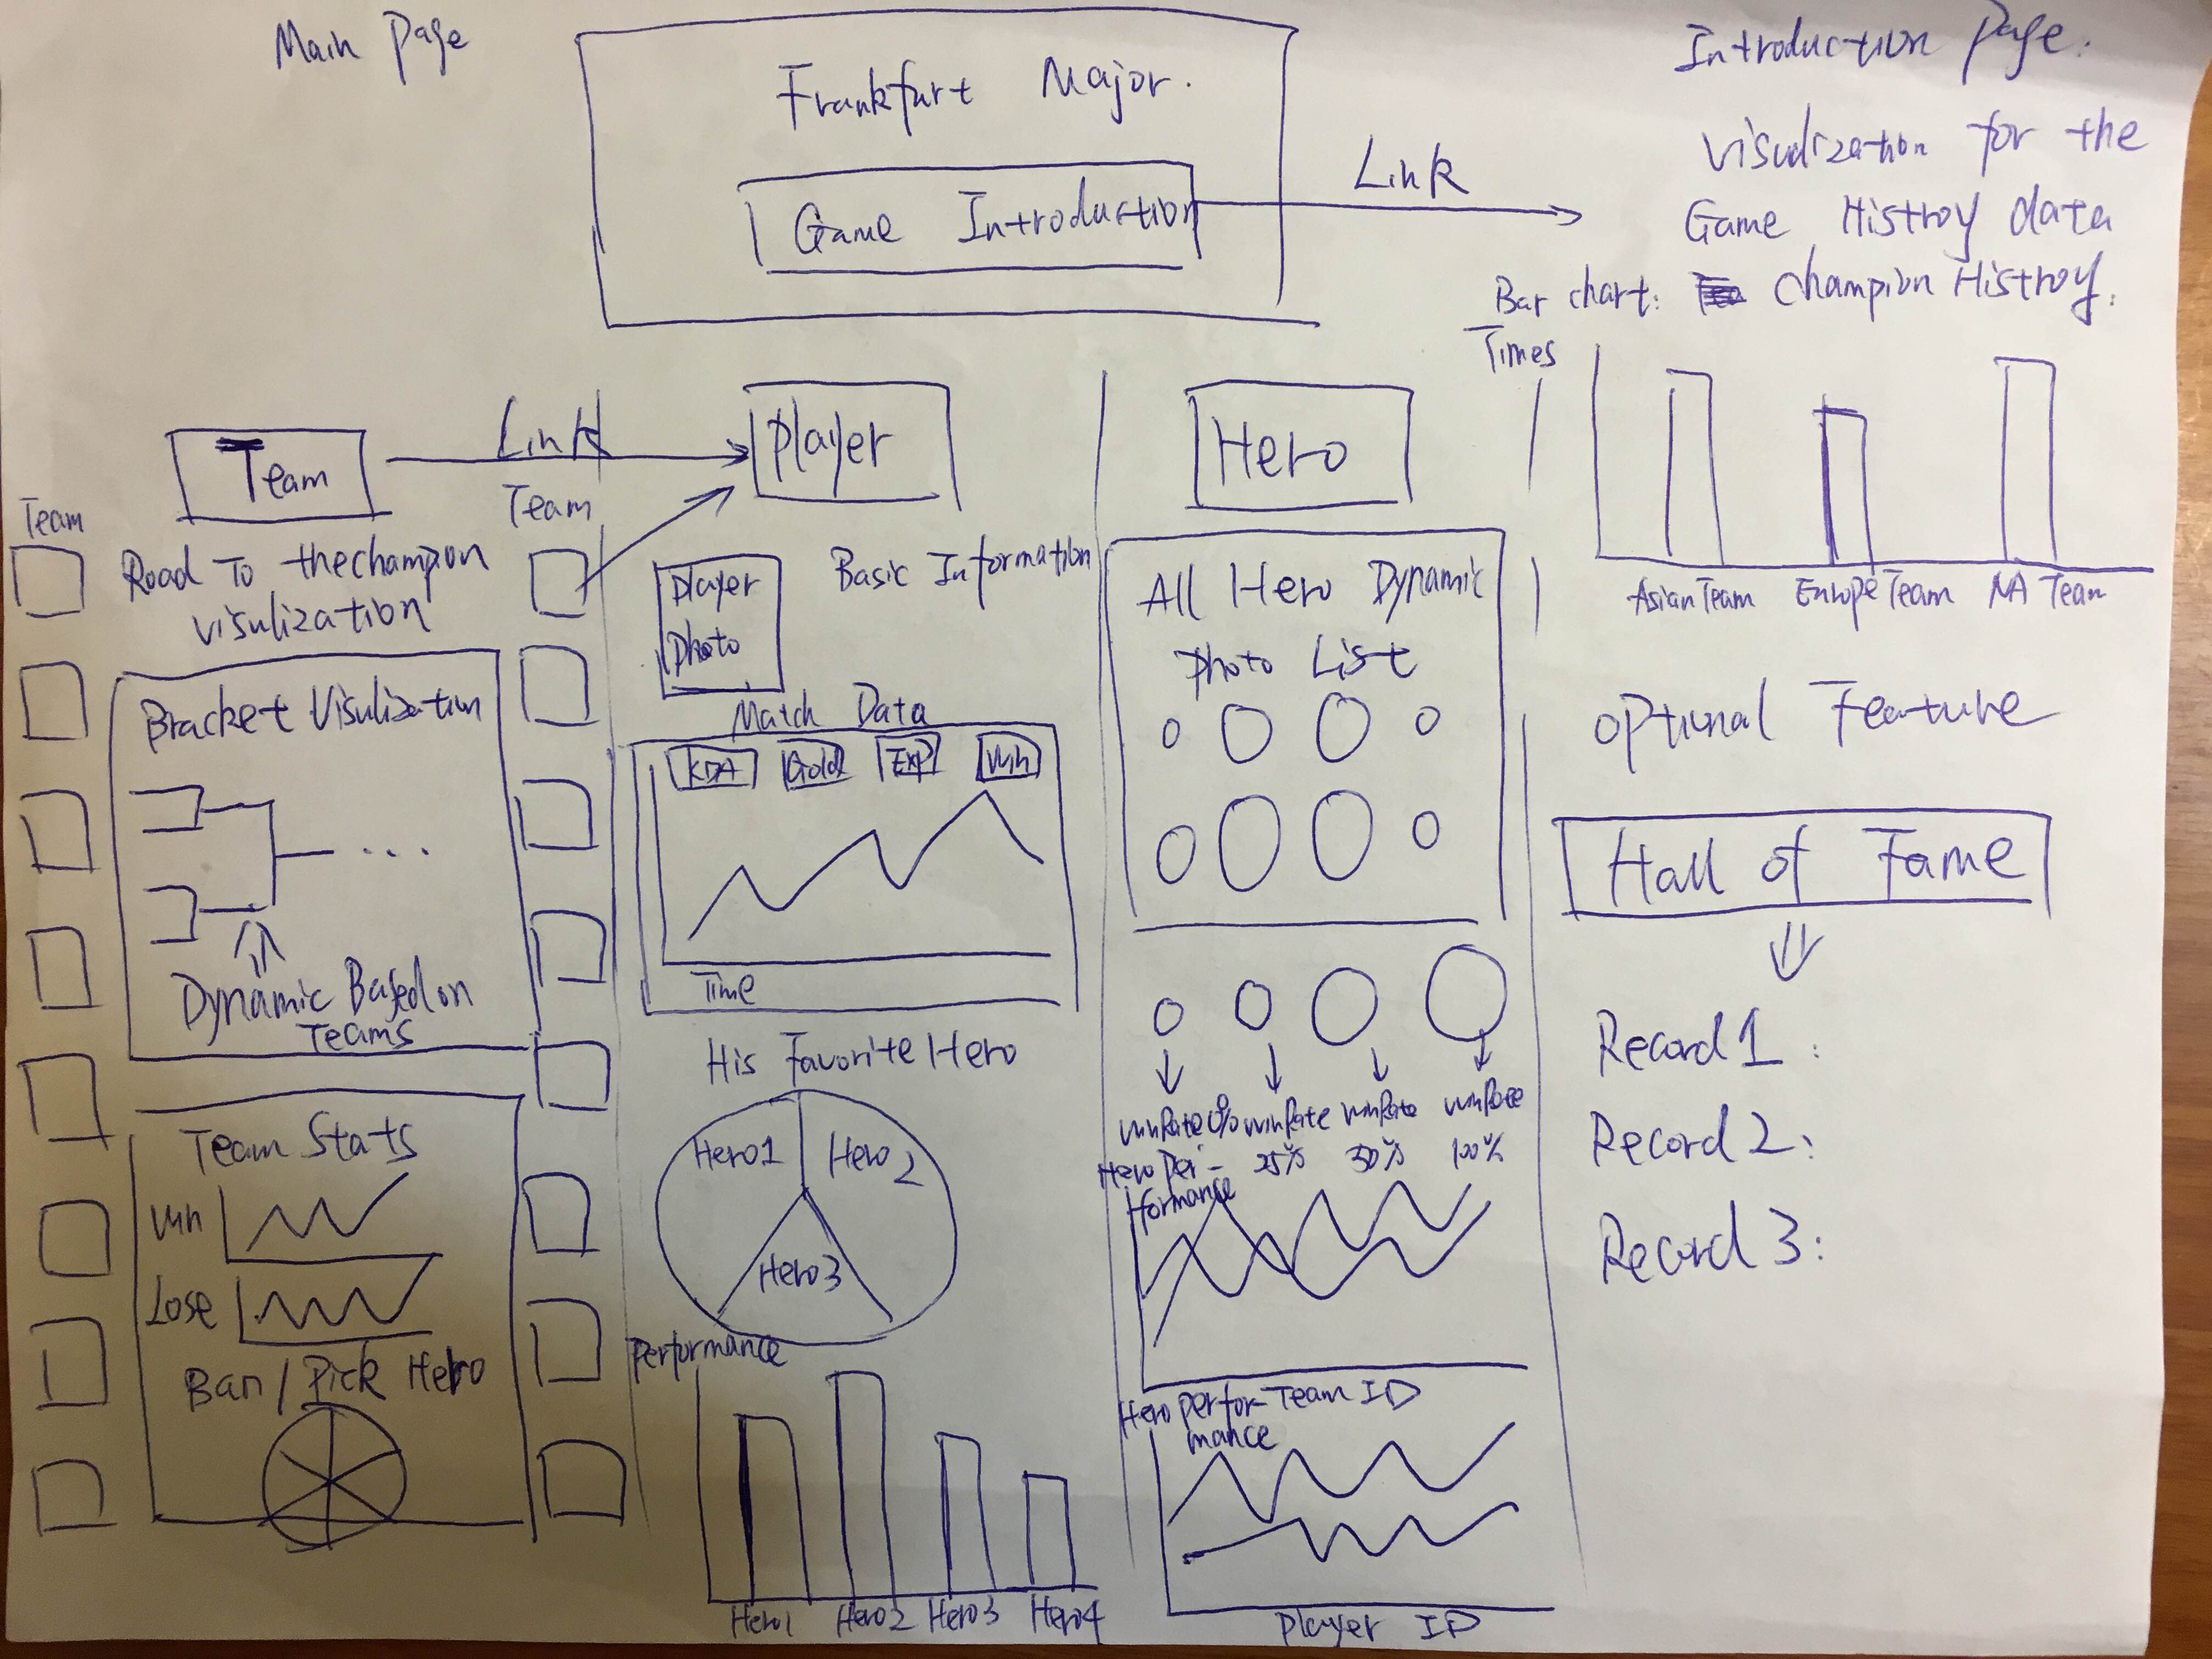 Main Page
Frankfurt Major.
Game Introduction
Link
Introduction Page:
Visulization for the
Game Histroy data
Bar chart: Champion Histroy.
Times
Asian Team
Europe Team
NA Team
Team
Link
Player
Hero
Team
Team
Road To the champion
visulization
Bracket Visulization
...
Dynamic Based on
Teams
Team Stats
Win
Lose
Ban / Pick Hero
Player
Photo
Basic Information
Match Data
KDA
Gold
Exp
Win
Time
His Favorite Hero
Hero1
Hero2
Hero3
Performance
Hero1
Hero2
Hero3
Hero4
All Hero Dynamic
Photo List
WinRate 0%
WinRate
25%
WinRate
50%
WinRate
100%
Hero Per-
formance
Team ID
Hero perfor-
mance
Player ID
Optional Feature
Hall of Fame
Record 1:
Record 2:
Record 3: